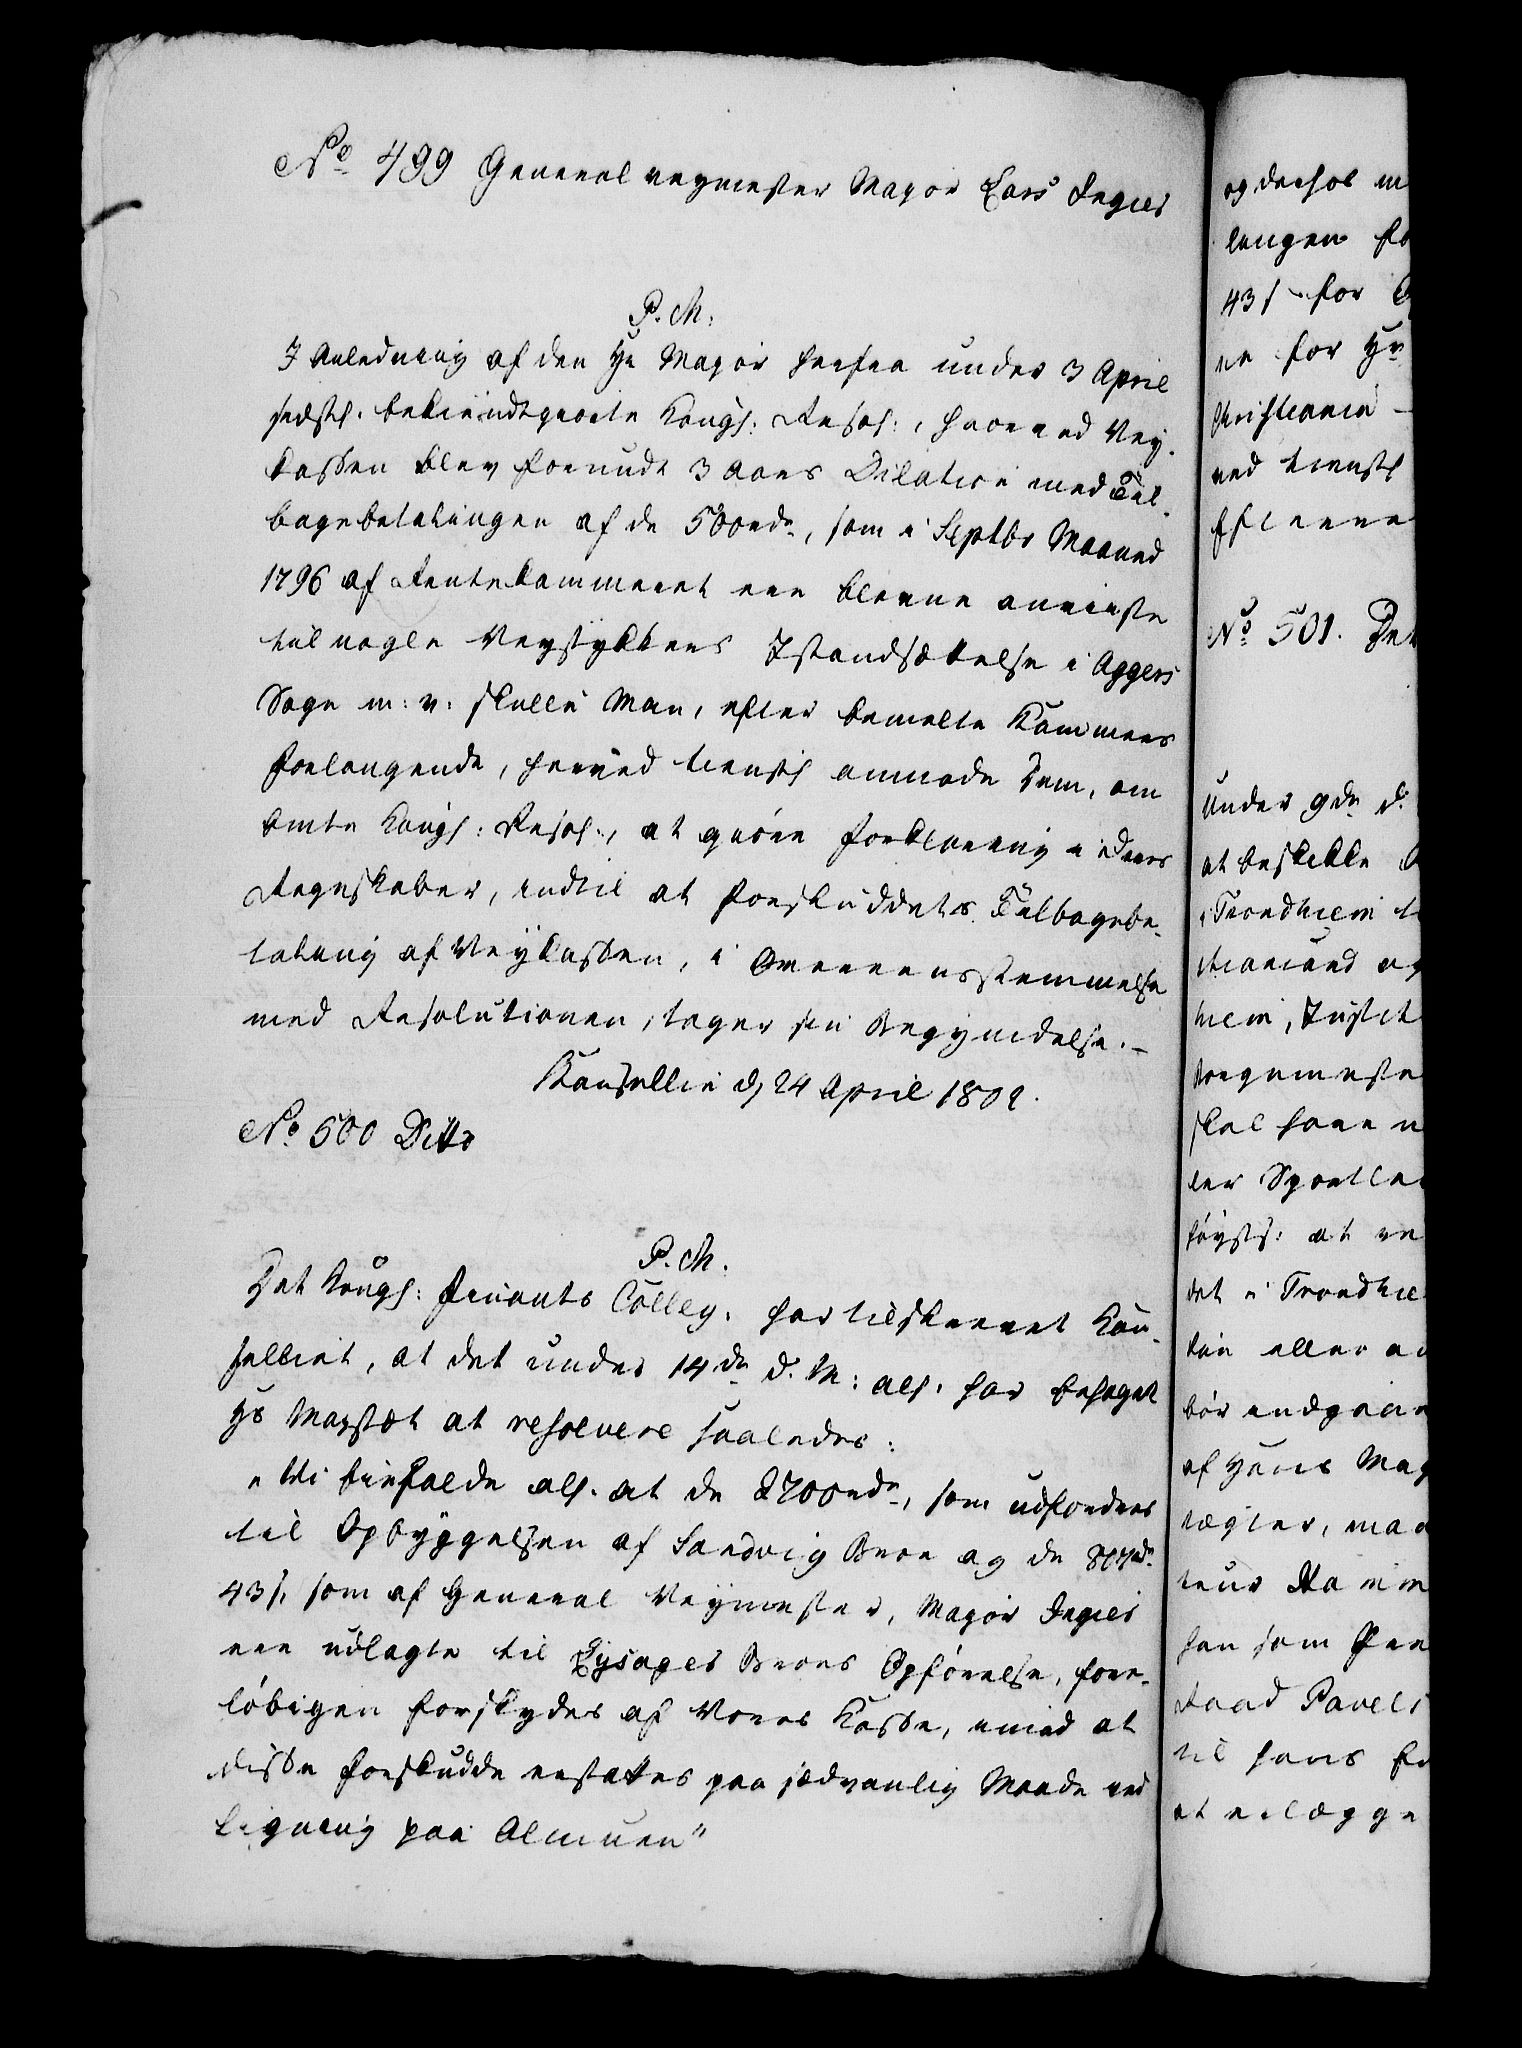 No 499 General veymester Major Lars Ingier
P. M.
I Anledning af den Hr Major herfra under 3 April
sidstl. bekiendtgiorte Kongl: Resol:, hvorved Vey-
kassen blev forundt 3 Aars Dilation med Til-
bagebetalingen af de 500rd, som i Septbr Maaned
1796 af Rentekammeret ere blevne anviiste
til nogle Veystykkers Istandsættelse i Aggers
Sogn m: v: skulle Man, efter bemelte Kammers
Forlangende, herved tienstl anmode Dem, om
bmte Kongl: Resol:, at giøre Forklaring i deres
Regnskaber, indtil at Forskuddets Tilbagebe-
taling af Veykassen, i Overeensstemmelse
med Resolutionen, tager sin Begyndelse. –
Kanselliet d. 24 April 1802.
No 500 Ditto
P. M.
Det kongl: Finants Colleg. har tilskrevet Kan-
selliet, at det under 14de d. M: all. har behaget
Hs Mayestæt at resolvere saaledes:
"Vi bifalde all. at de 2700rd, som udfordres
til Opbyggelsen af Sandvig Broe og de 817rd
43 s, som af General Veymester, Major Ingier
ere udlagte til Lysages Broes Opførelse, fore-
løbigen forskydes af Vores Kasse, imod at
disse Forskudde erstattes paa sædvanlig Maade ved
Ligning paa Almuen"
og derhos m
langen fo
43 s for
re for Hr
Christiania –
ved tienstl
No 501. Det
under 9de d.
at beskikke
i Trondhiem
tiansand og
hiem, Justit
borgemeste
skal have
ler Sportle
at ve
det i Trondhie
eller
bør endgiør
af Hans Maj
tægter, ma
teur Ham
han som
Raad Pavels
til hans
at erlægge